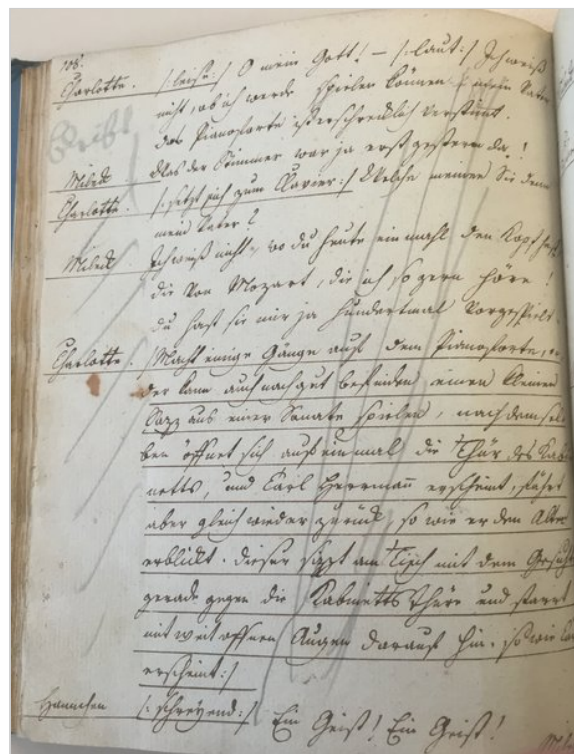 108.
Charlotte. /: leise :/ O mein Gott! — /: laut :/ Ich weiß
nicht, ob ich werde spielen können — mein Vater
das Pianoforte ist erschrecklich verstimmt.
Milek Was der Stimmer war ja erst gestern da!
Charlotte. /: setzt sich zum Clavier :/ Welche meinen Sie denn
mein Vater?
Milek Ich weiß nicht, wo du heute einmahl den Kopf hast,
die von Mozart, die ich so gern höre!
du hast sie mir ja hundertmal vorgespielt.
Charlotte. /: Macht einige Gänge auf dem Pianoforte,
der kann auch nach gut befinden einen kleinen
Satz aus einer Sonate spielen, nach demsel
ben öffnet sich auf einmal die Thür des Kabi
netts, und Carl Herrmann erscheint, fährt
aber gleich wieder zurück, so wie er den Alten
erblickt. dieser sitzt am Tisch mit dem Gesicht
gerade gegen die Kabinetts Thüre und starrt
mit weit offnen Augen darauf hin, so wie Carl
erscheint :/
Hannchen /: schreyend :/ Ein Geist! Ein Geist!